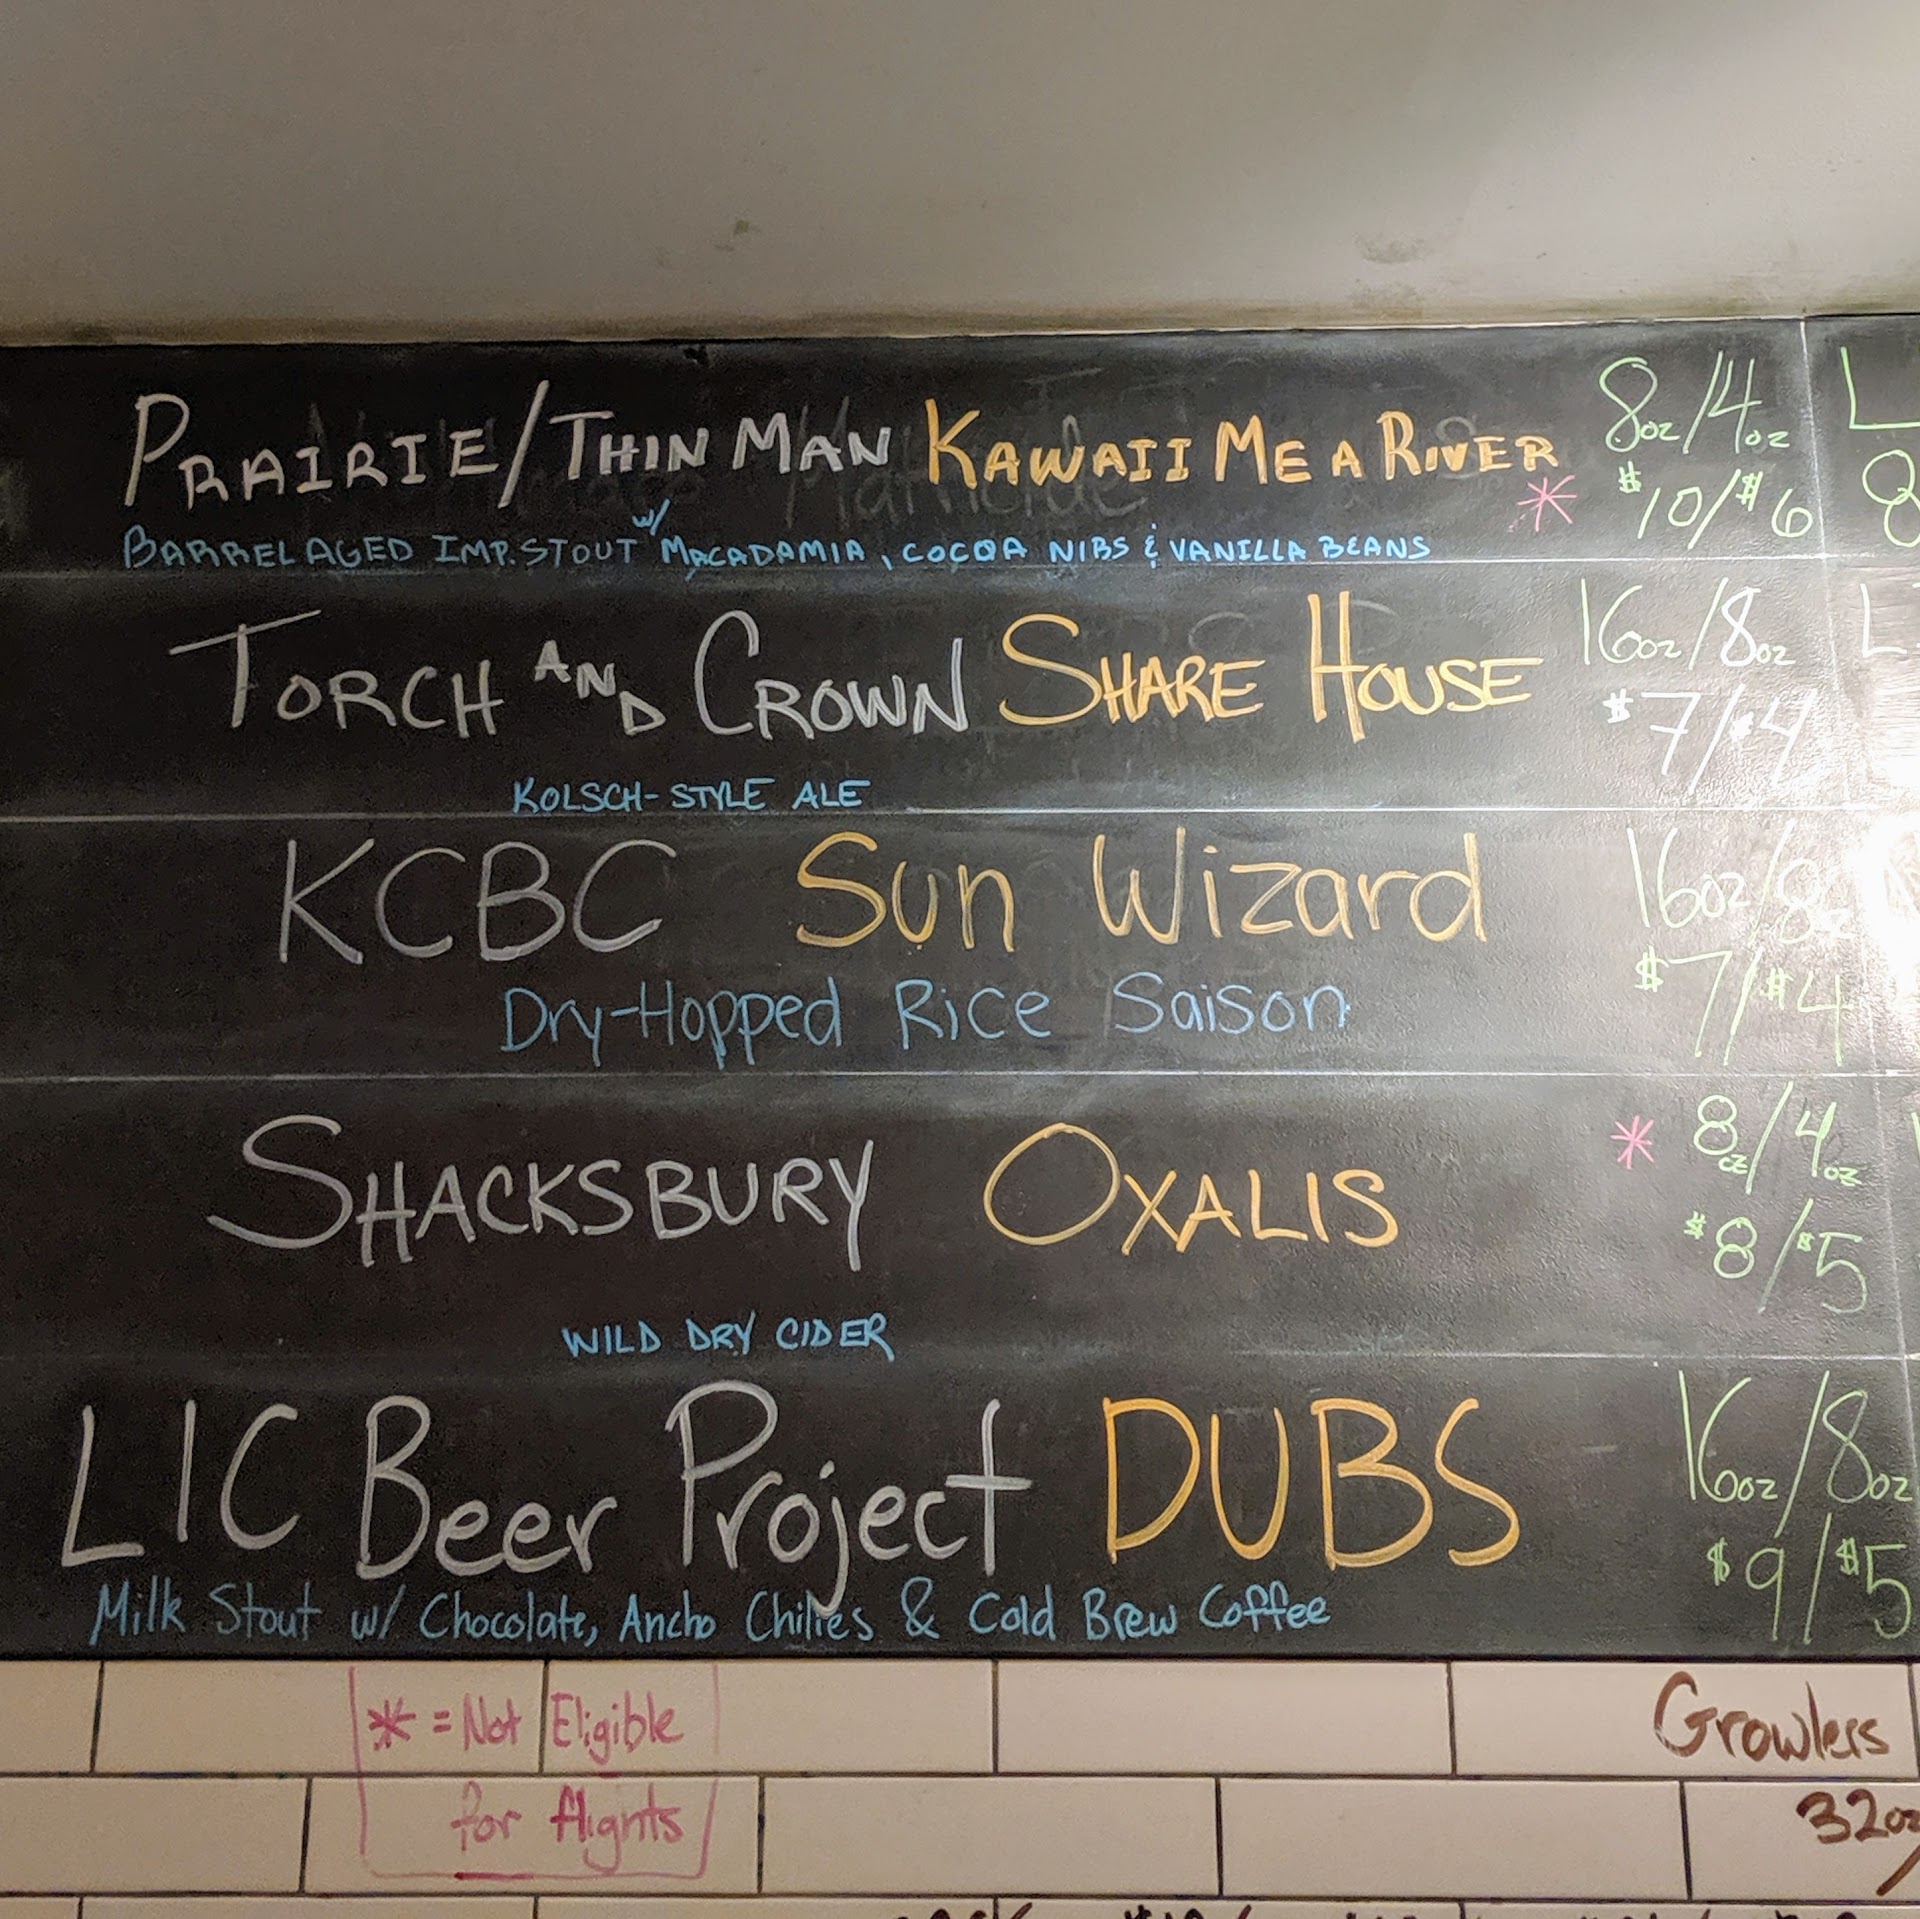 PRAIRIE/THIN MAN KAWAII ME A RIVER 8oz/4oz
* $10/$6
BARREL AGED IMP. STOUT w/ MACADAMIA, COCOA NIBS & VANILLA BEANS
TORCH AND CROWN SHARE HOUSE 16oz/8oz
$7/$4
KOLSCH-STYLE ALE
KCBC Sun Wizard 16oz/8oz
Dry-Hopped Rice Saison $7/$4
SHACKSBURY OXALIS * 8oz/4oz
$8/$5
WILD DRY CIDER
LIC Beer Project DUBS 16oz/8oz
$9/$5
Milk Stout w/ Chocolate, Ancho Chilies & Cold Brew Coffee
* = Not Eligible
for flights
Growlers
32oz/